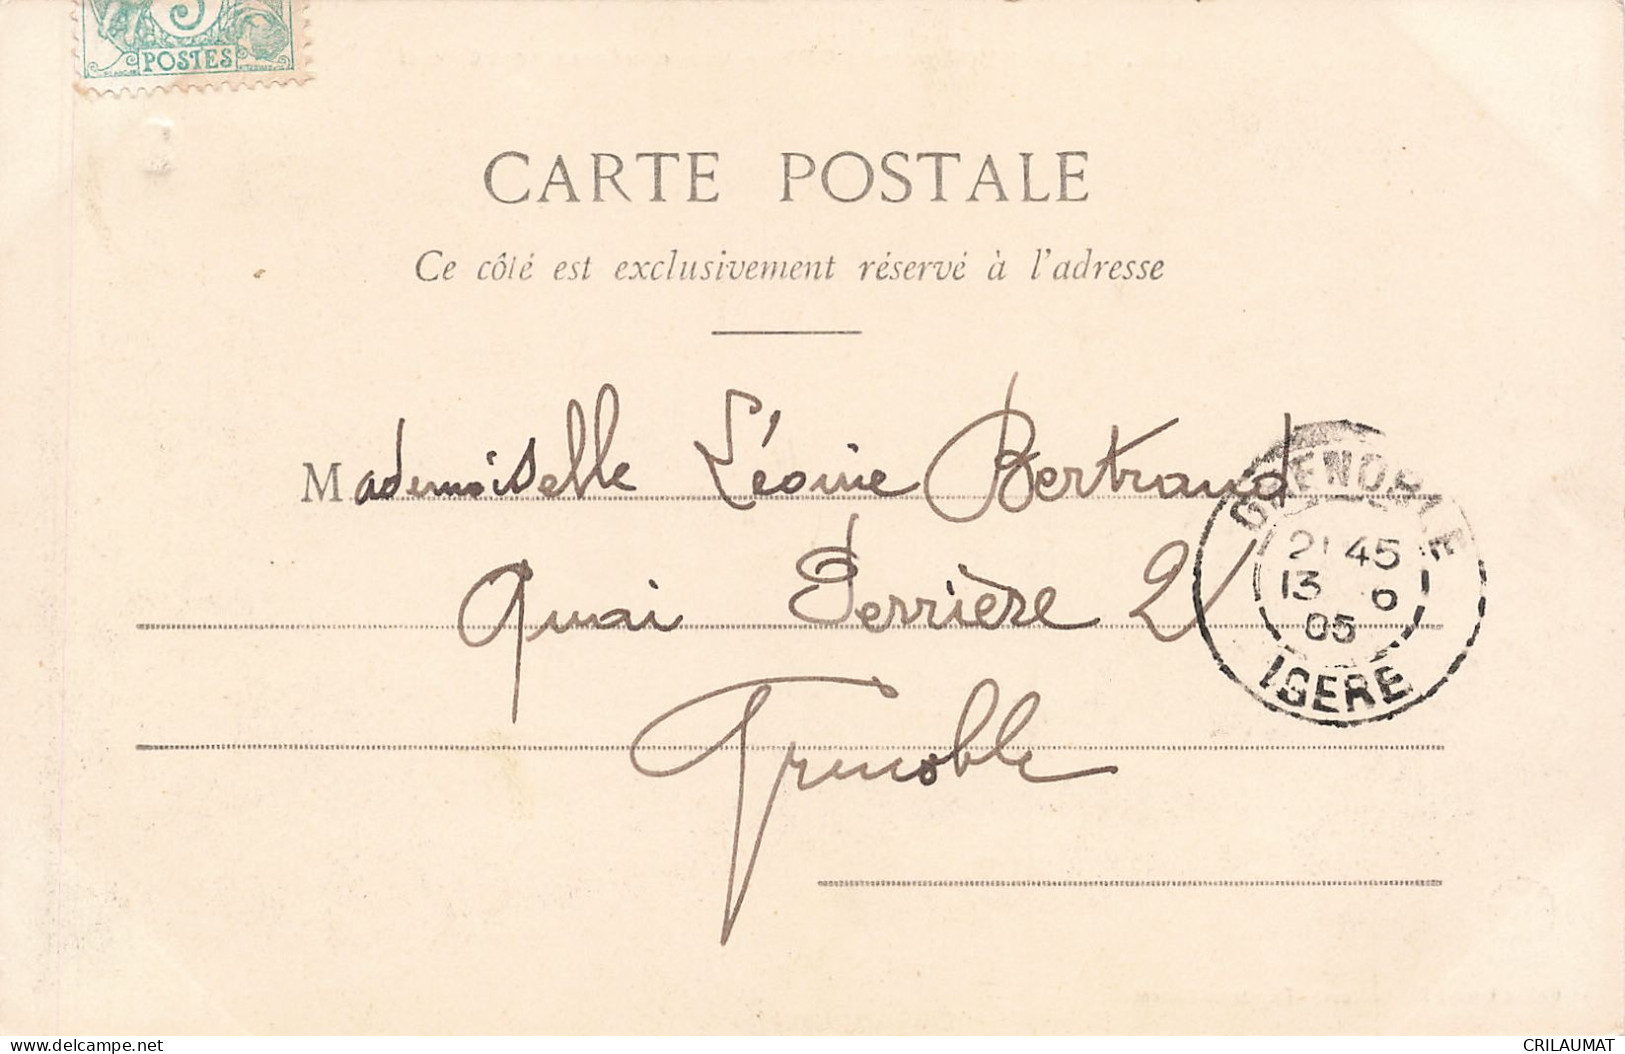 5
POSTES
CARTE POSTALE
Ce côté est exclusivement réservé à l'adresse
Mademoiselle Léonie Bertrand
Quai Perrière 2
Grenoble
GRENOBLE
21 45
13 6
05
ISERE
delcampe.net
CRILAUMAT